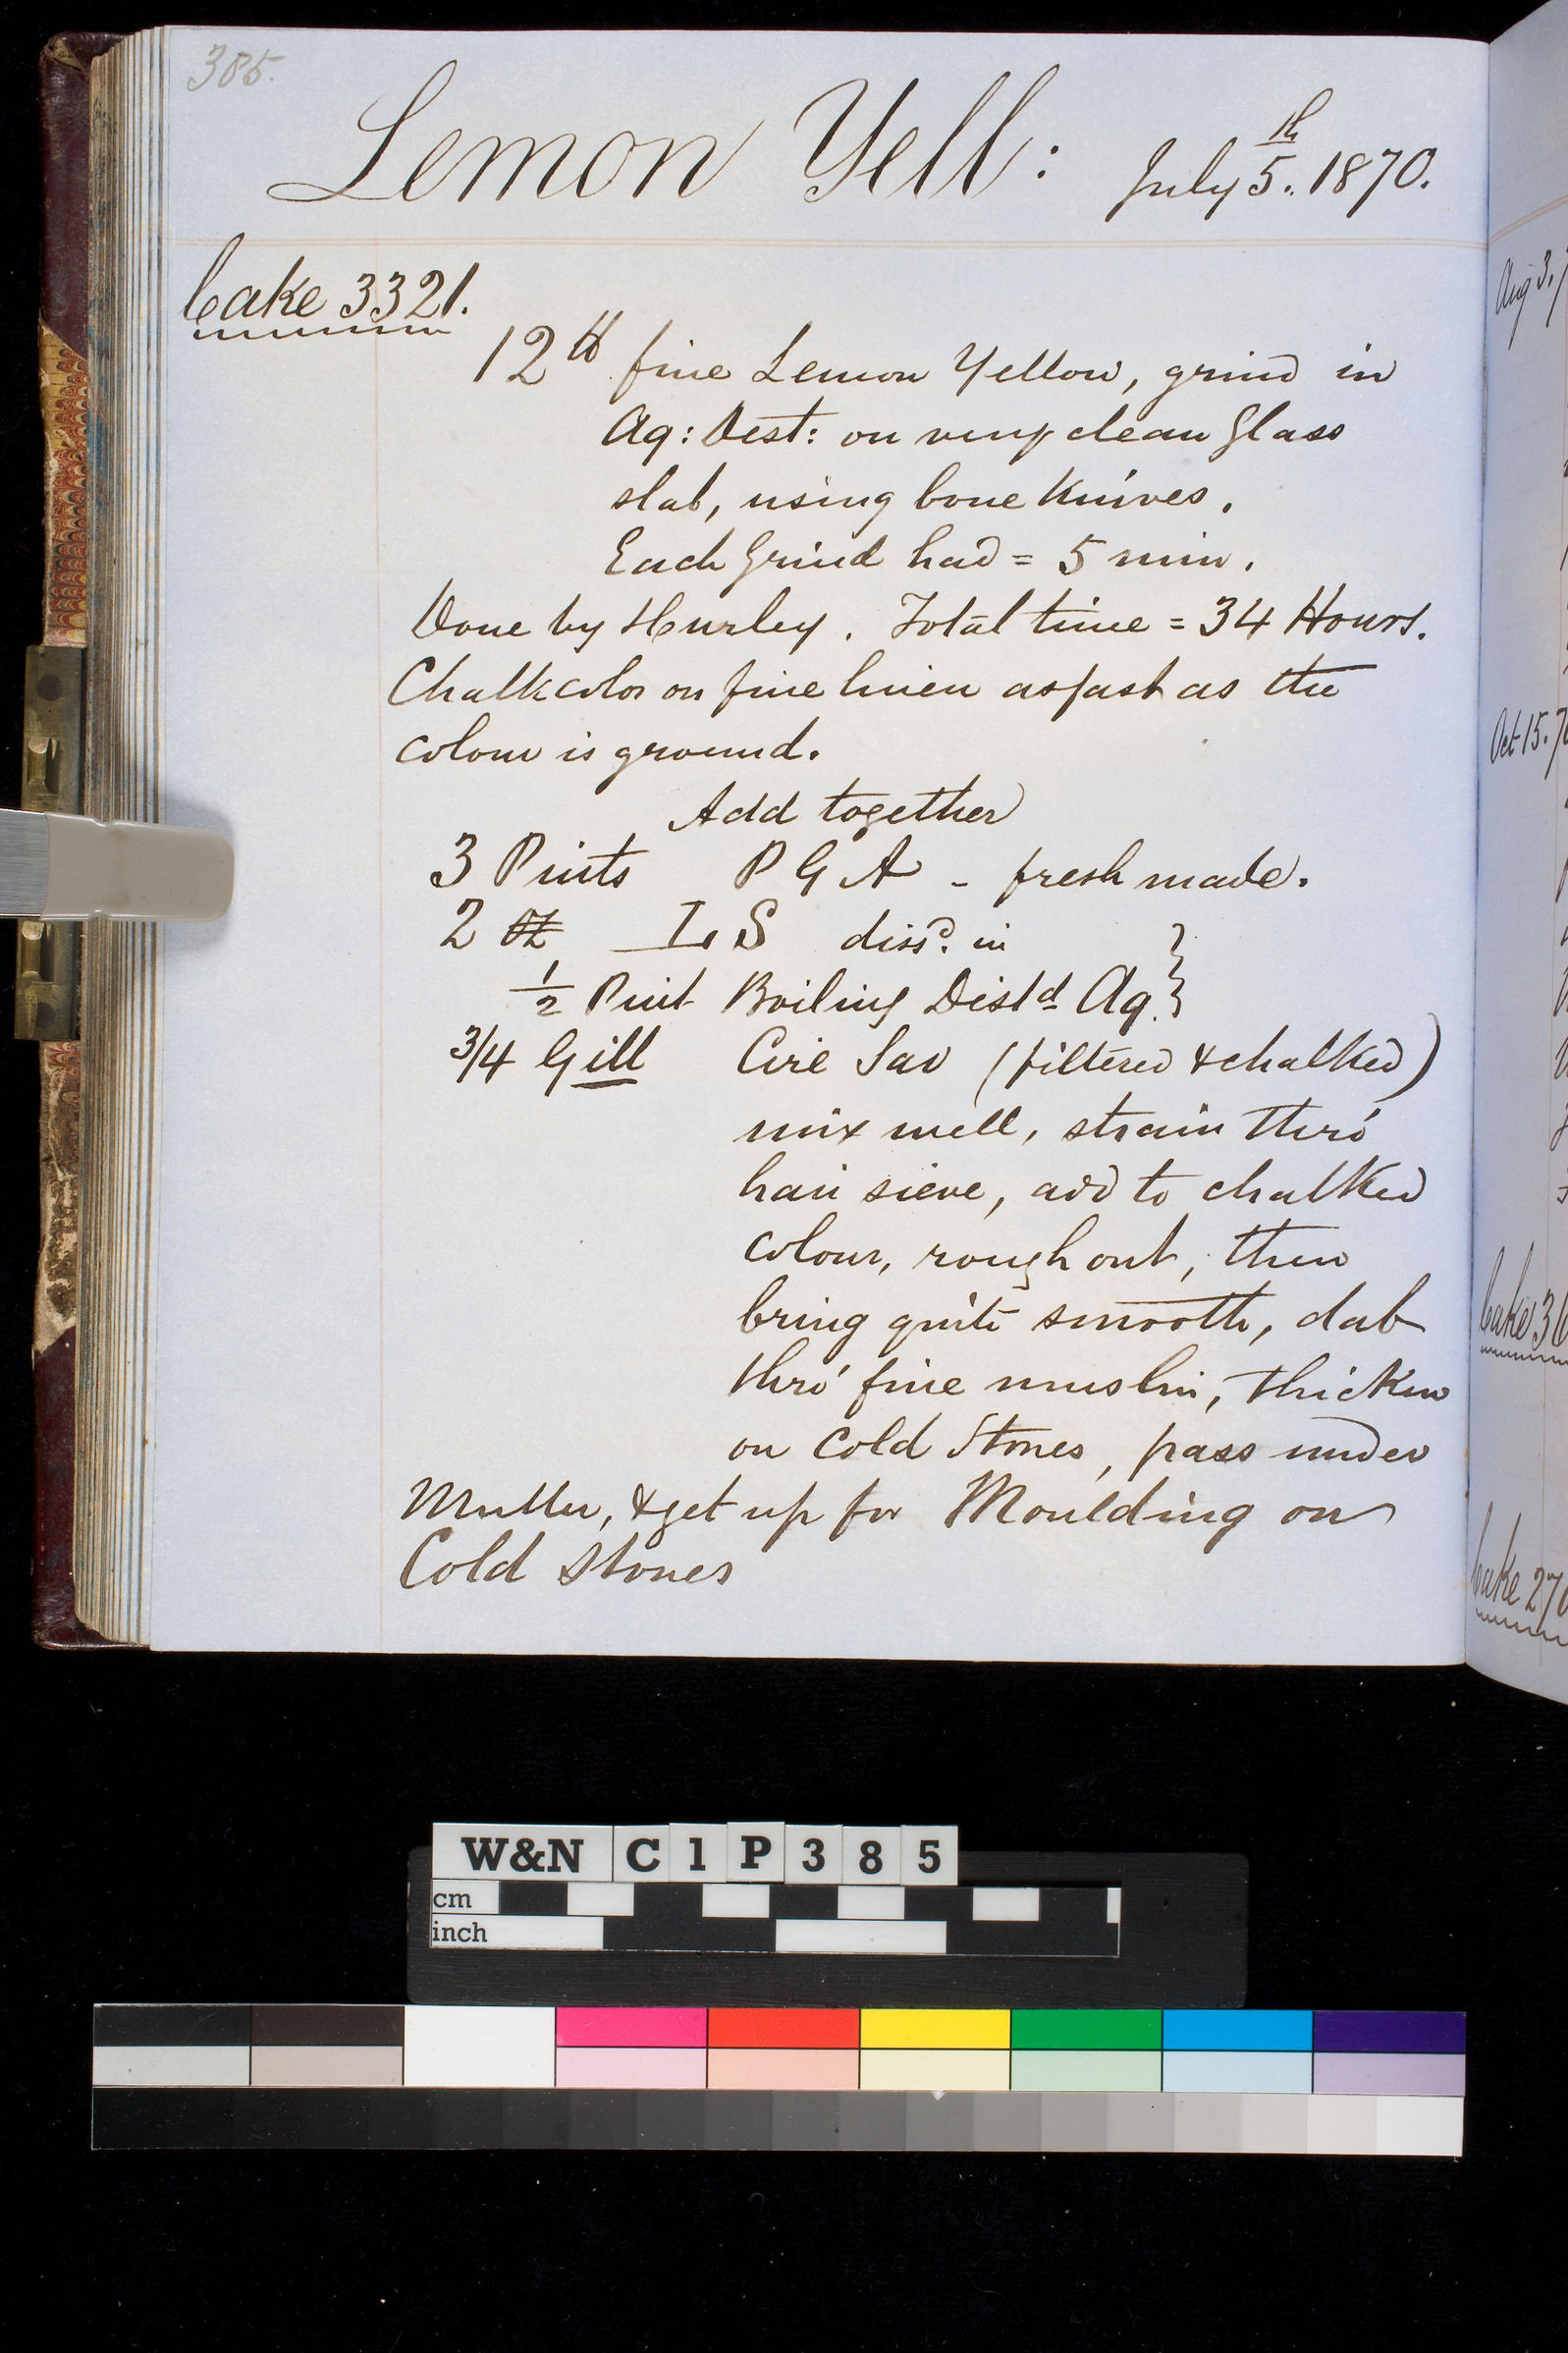 385.
Lemon Yell: July 5th. 1870.
Cake 3321.
12 lb fine Lemon Yellow, grind in
Aq: Dest: on very clean Glass
slab, using bone Knives.
Each Grind had = 5 min.
Done by Hurley. Total time = 34 Hours.
Chalk color on fine linen as fast as the
colour is ground.
Add together
3 Pints P G A - fresh made.
2 oz L S dissd. in }
1/2 Pint Boiling Distd Aq. }
3/4 Gill Cire Sav (filtered & chalked)
mix well, strain thro'
hair sieve, add to chalked
colour, rough out, then
bring quite smooth, dab
thro' fine muslin, thicken
on Cold Stones, pass under
Muller, & get up for Moulding on
Cold Stones
Aug 3,7
Oct 15.7
Cake 36
Cake 270
W&N C 1 P 3 8 5
cm
inch